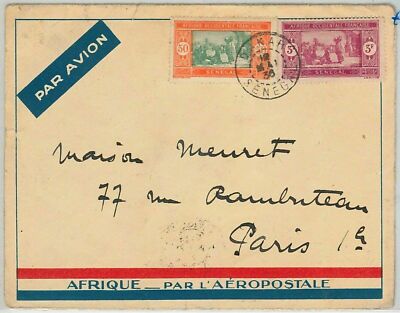 PAR AVION
AFRIQUE OCCIDENTALE FRANÇAISE
50 50
SÉNÉGAL
AFRIQUE OCCIDENTALE FRANÇAISE
5F 5F
SÉNÉGAL
DAKAR
SÉNÉGAL
Maison Meuret
77 rue Rambuteau
Paris 1er
AFRIQUE — PAR L'AÉROPOSTALE